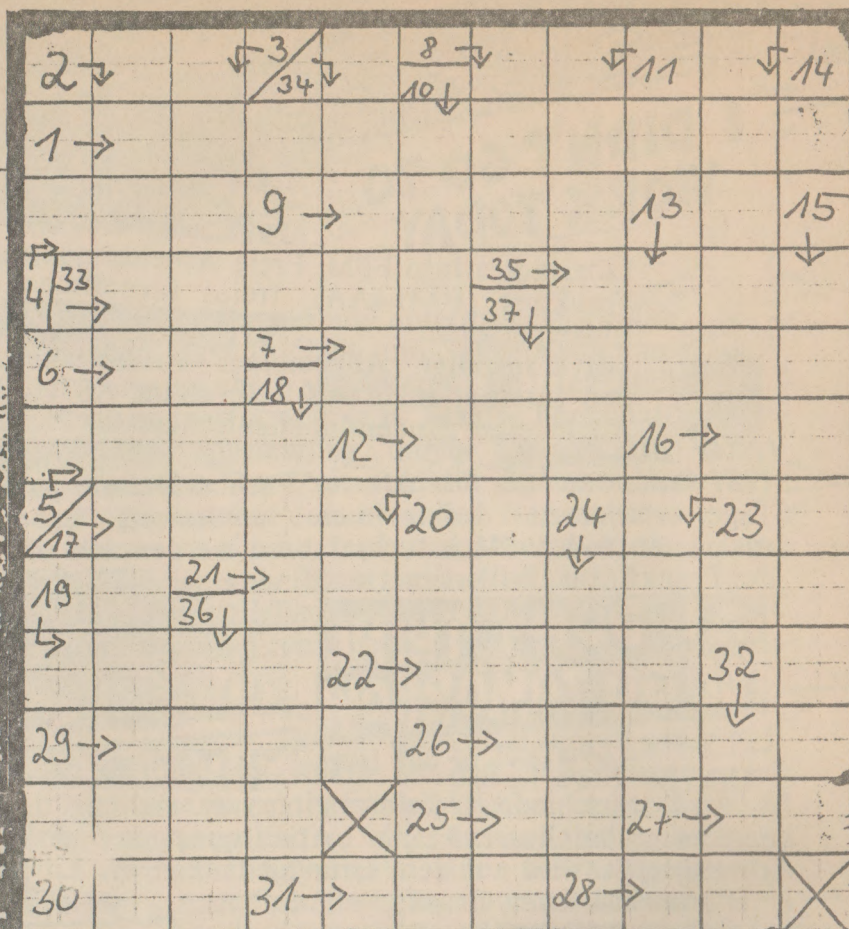 2 3 34 8 10 11 14
1
9 13 15
4 33 35 37
6 7 18
12 16
5 17 20 24 23
19 21 36
22 32
29 26
25 27
30 31 28